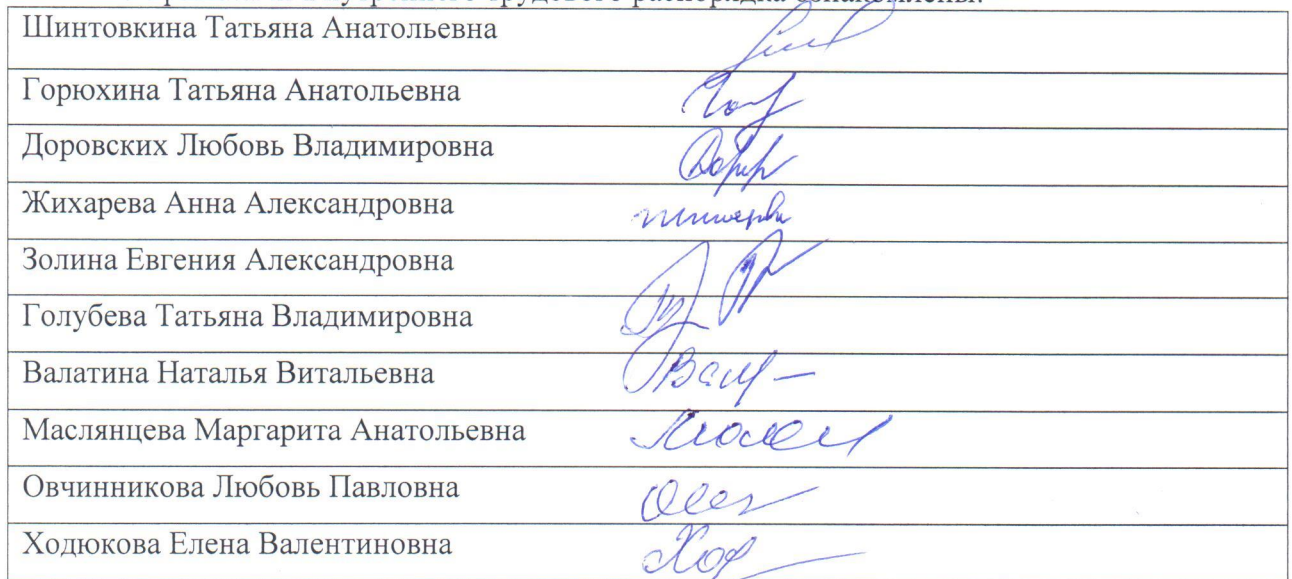 внутреннего трудового распорядка ознакомлены:
Шинтовкина Татьяна Анатольевна
Горюхина Татьяна Анатольевна
Доровских Любовь Владимировна
Жихарева Анна Александровна
Золина Евгения Александровна
Голубева Татьяна Владимировна
Валатина Наталья Витальевна
Маслянцева Маргарита Анатольевна
Овчинникова Любовь Павловна
Ходюкова Елена Валентиновна